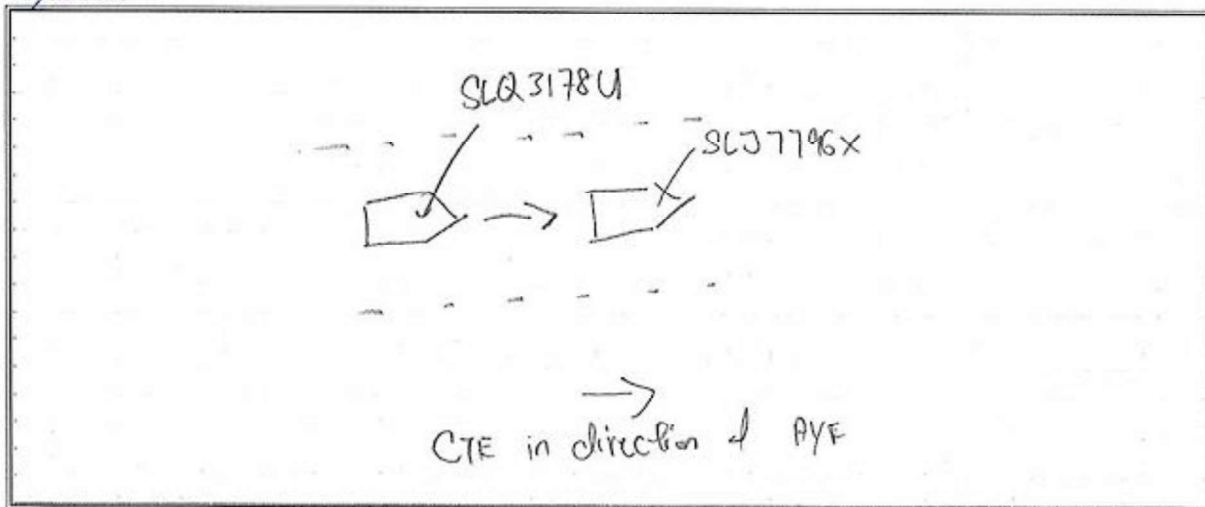 SLQ3178U
SLJ7796X
CTE in direction of AYE